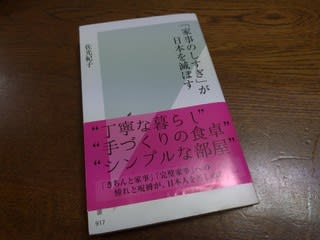 「家事のしすぎ」が
日本を滅ぼす
佐光紀子
“丁寧な暮らし”
“手づくりの食卓”
“シンプルな部屋”
「きちんと家事」「完璧家事」への
憧れと呪縛が、日本人を
917